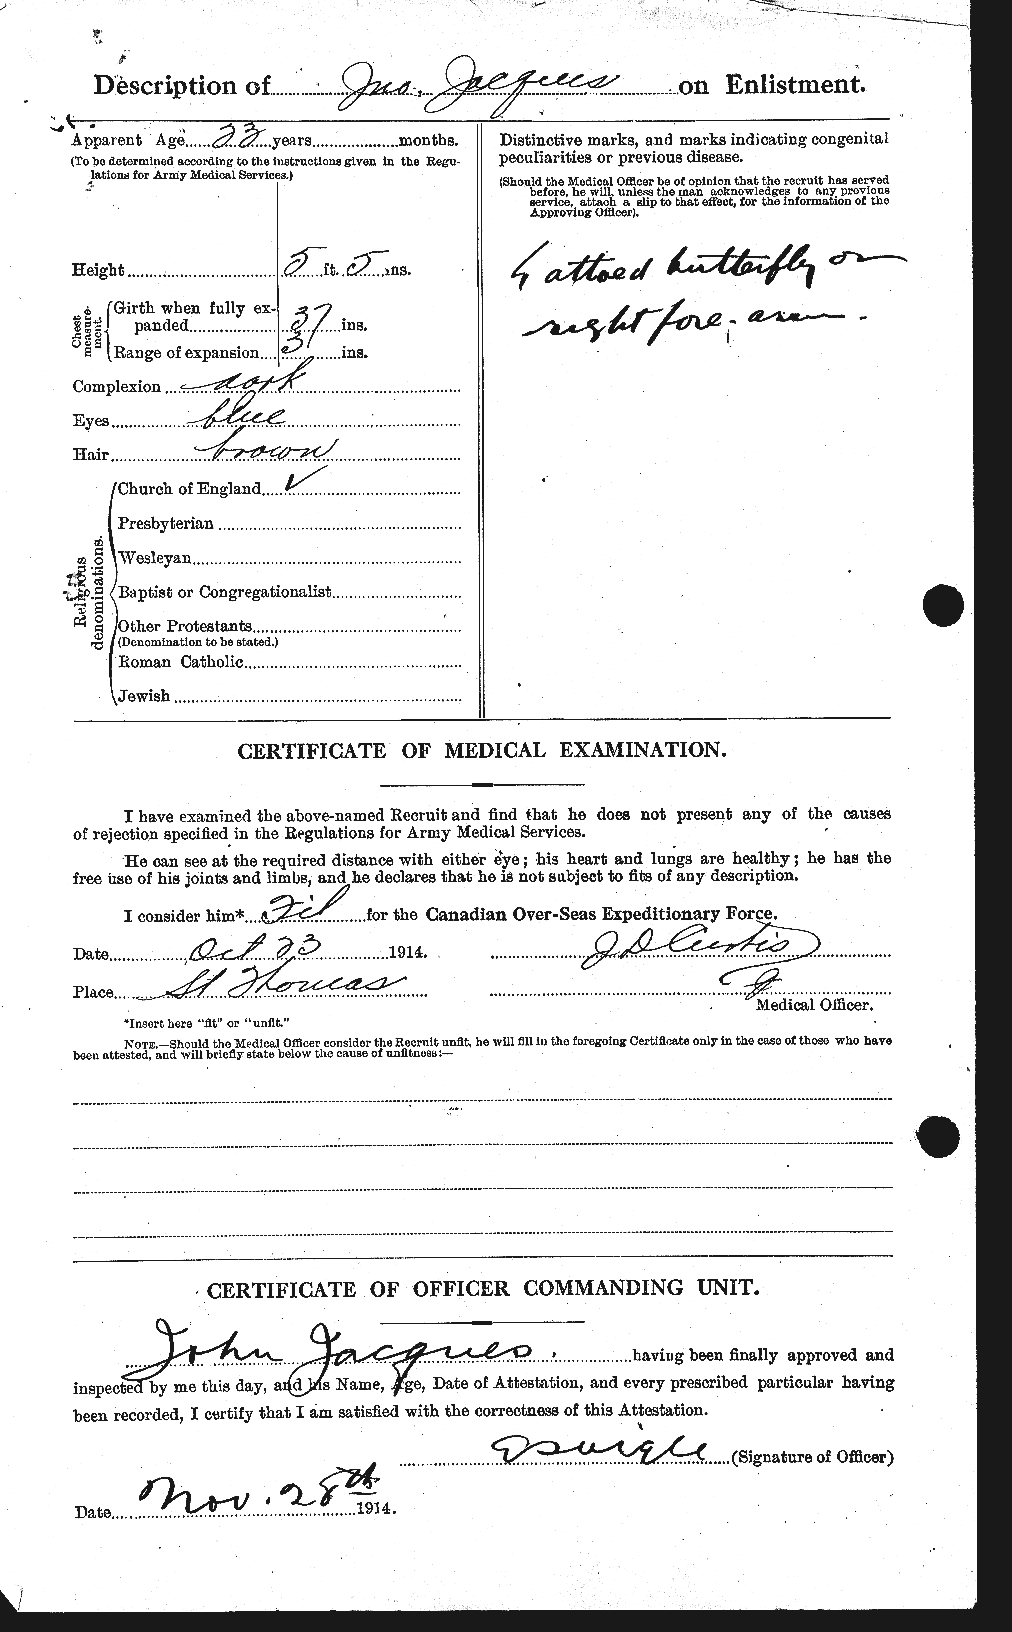 Description of Jno. Jacques on Enlistment.
Apparent Age 23 years months.
(To be determined according to the instructions given in the Regu-
lations for Army Medical Services.)
Height 5 ft. 5 ins.
Chest measure-ment.
Girth when fully ex-
panded 37 ins.
Range of expansion 3 ins.
Complexion dark
Eyes blue
Hair brown
Religious denominations.
Church of England ✓
Presbyterian
Wesleyan
Baptist or Congregationalist
Other Protestants
(Denomination to be stated.)
Roman Catholic
Jewish
Distinctive marks, and marks indicating congenital
peculiarities or previous disease.
(Should the Medical Officer be of opinion that the recruit has served
before, he will, unless the man acknowledges to any previous
service, attach a slip to that effect, for the information of the
Approving Officer).
butterfly on
right fore-arm.
CERTIFICATE OF MEDICAL EXAMINATION.
I have examined the above-named Recruit and find that he does not present any of the causes
of rejection specified in the Regulations for Army Medical Services.
He can see at the required distance with either eye; his heart and lungs are healthy; he has the
free use of his joints and limbs, and he declares that he is not subject to fits of any description.
I consider him* Fit for the Canadian Over-Seas Expeditionary Force.
Date Oct 23 1914.
J D Curtis
Place St Thomas
Medical Officer.
*Insert here "fit" or "unfit."
NOTE.—Should the Medical Officer consider the Recruit unfit, he will fill in the foregoing Certificate only in the case of those who have
been attested, and will briefly state below the cause of unfitness:—
CERTIFICATE OF OFFICER COMMANDING UNIT.
John Jacques. having been finally approved and
inspected by me this day, and his Name, Age, Date of Attestation, and every prescribed particular having
been recorded, I certify that I am satisfied with the correctness of this Attestation.
(Signature of Officer)
Date Nov. 28th 1914.